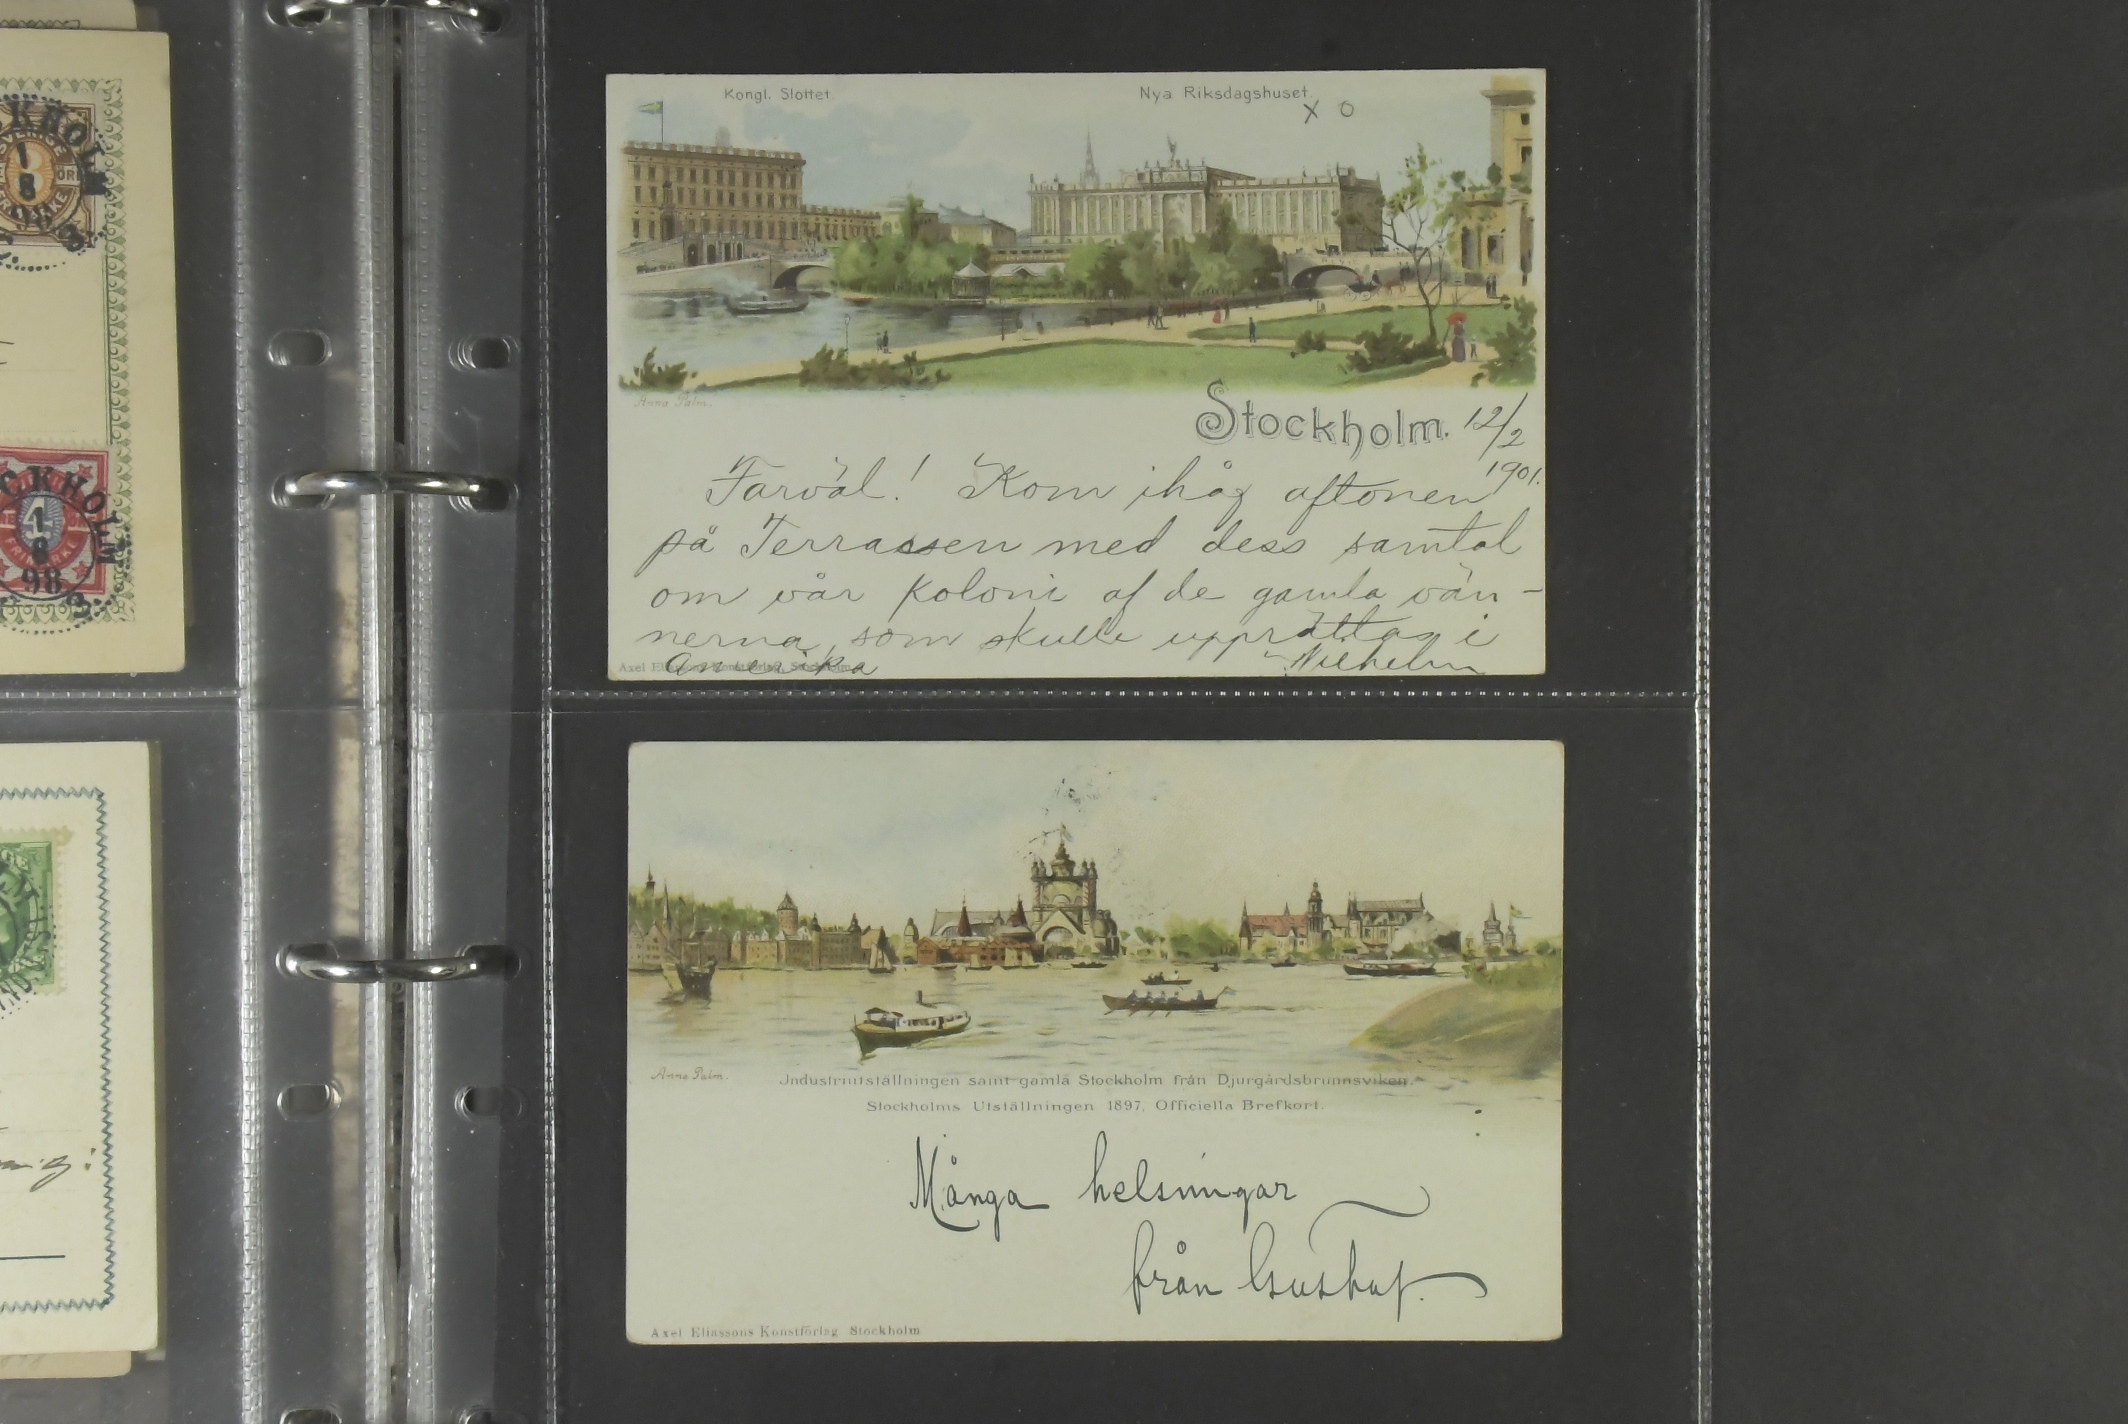 STOCKHOLM
SVERIGE
ÖRE
1
8
Kongl. Slottet.
Nya Riksdagshuset.
X O
Anna Palm.
Stockholm. 12/2
1901.
Farväl! Kom ihåg aftonen
på Terrassen med dess samtal
om vår koloni af de gamla vän-
nerna, som skulle upprättas i
Amerika
Wilhelm
Axel Eliassons Konstförlag, Stockholm
STOCKHOLM
4
FRIMÄRKE
1
8
98
Anna Palm.
Industriutställningen samt gamla Stockholm från Djurgårdsbrunnsviken.
Stockholms Utställningen 1897. Officiella Brefkort.
Många helsningar
från Gustaf.
Axel Eliassons Konstförlag Stockholm